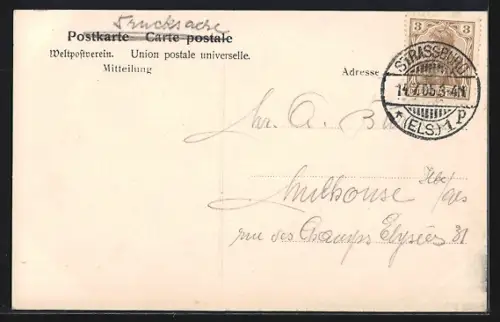 Drucksache
Postkarte — Carte postale
Weltpostverein. Union postale universelle.
Mitteilung
Adresse
3 3
STRASSBURG
* (ELS.) 1 p
A.
Mulhouse
rue des Champs Elysées 31